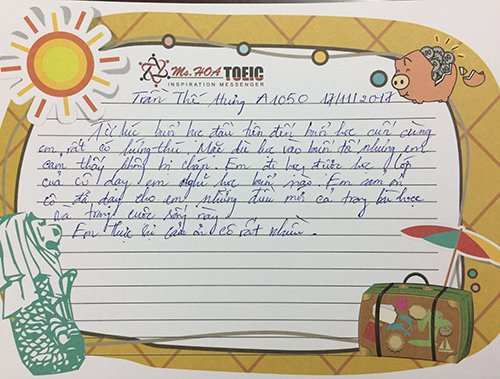 Ms.HOA TOEIC
INSPIRATION MESSENGER
Trần Thế Hưng A1050 17/11/2017
Từ lúc buổi học đầu tiên đến buổi học cuối cùng
em rất có hứng thú. Mặc dù học vào buổi tối nhưng em
cảm thấy không bị chán. Em đi học được học lớp
của cô dạy em nghỉ học buổi nào. Em cảm ơn
cô đã dạy cho em những điều mới cả trong bài học
và trong cuộc sống này
Em thực sự cảm ơn cô rất nhiều.